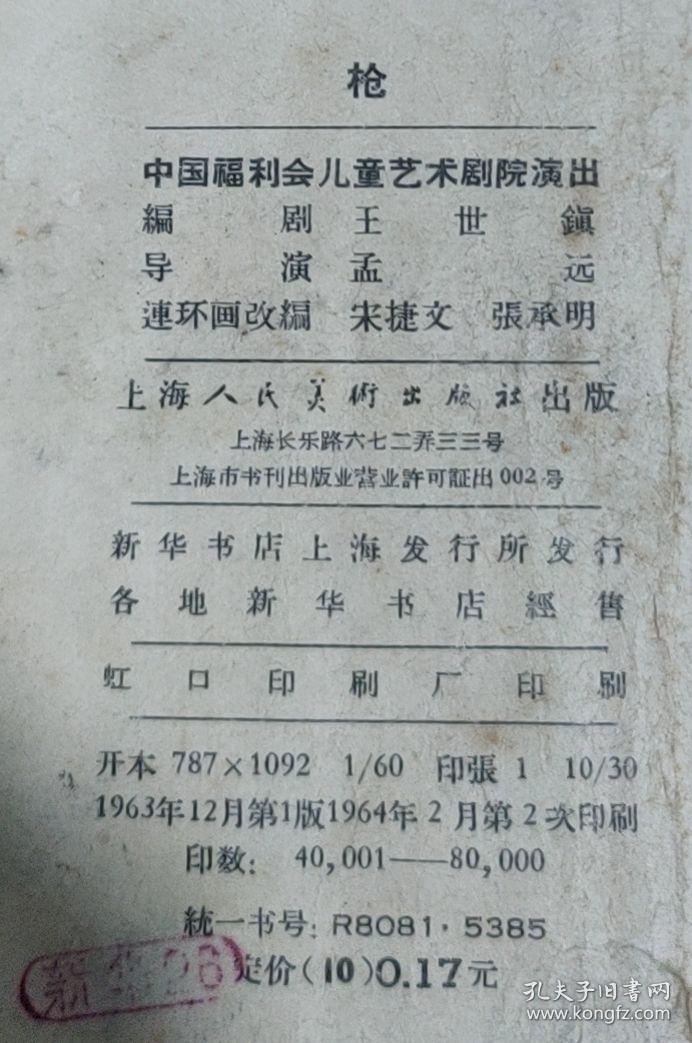 枪
中国福利会儿童艺术剧院演出
編剧王世鎭
导演孟远
連环画改編 宋捷文 張承明
上海人民美術出版社出版
上海长乐路六七二弄三三号
上海市书刊出版业营业許可証出002号
新华书店上海发行所发行
各地新华书店經售
虹口印刷厂印刷
开本 787×1092 1/60 印張 1 10/30
1963年12月第1版1964年2月第2次印刷
印数: 40,001——80,000
統一书号: R8081·5385
定价(10)0.17元
孔夫子旧书网
www.kongfz.com